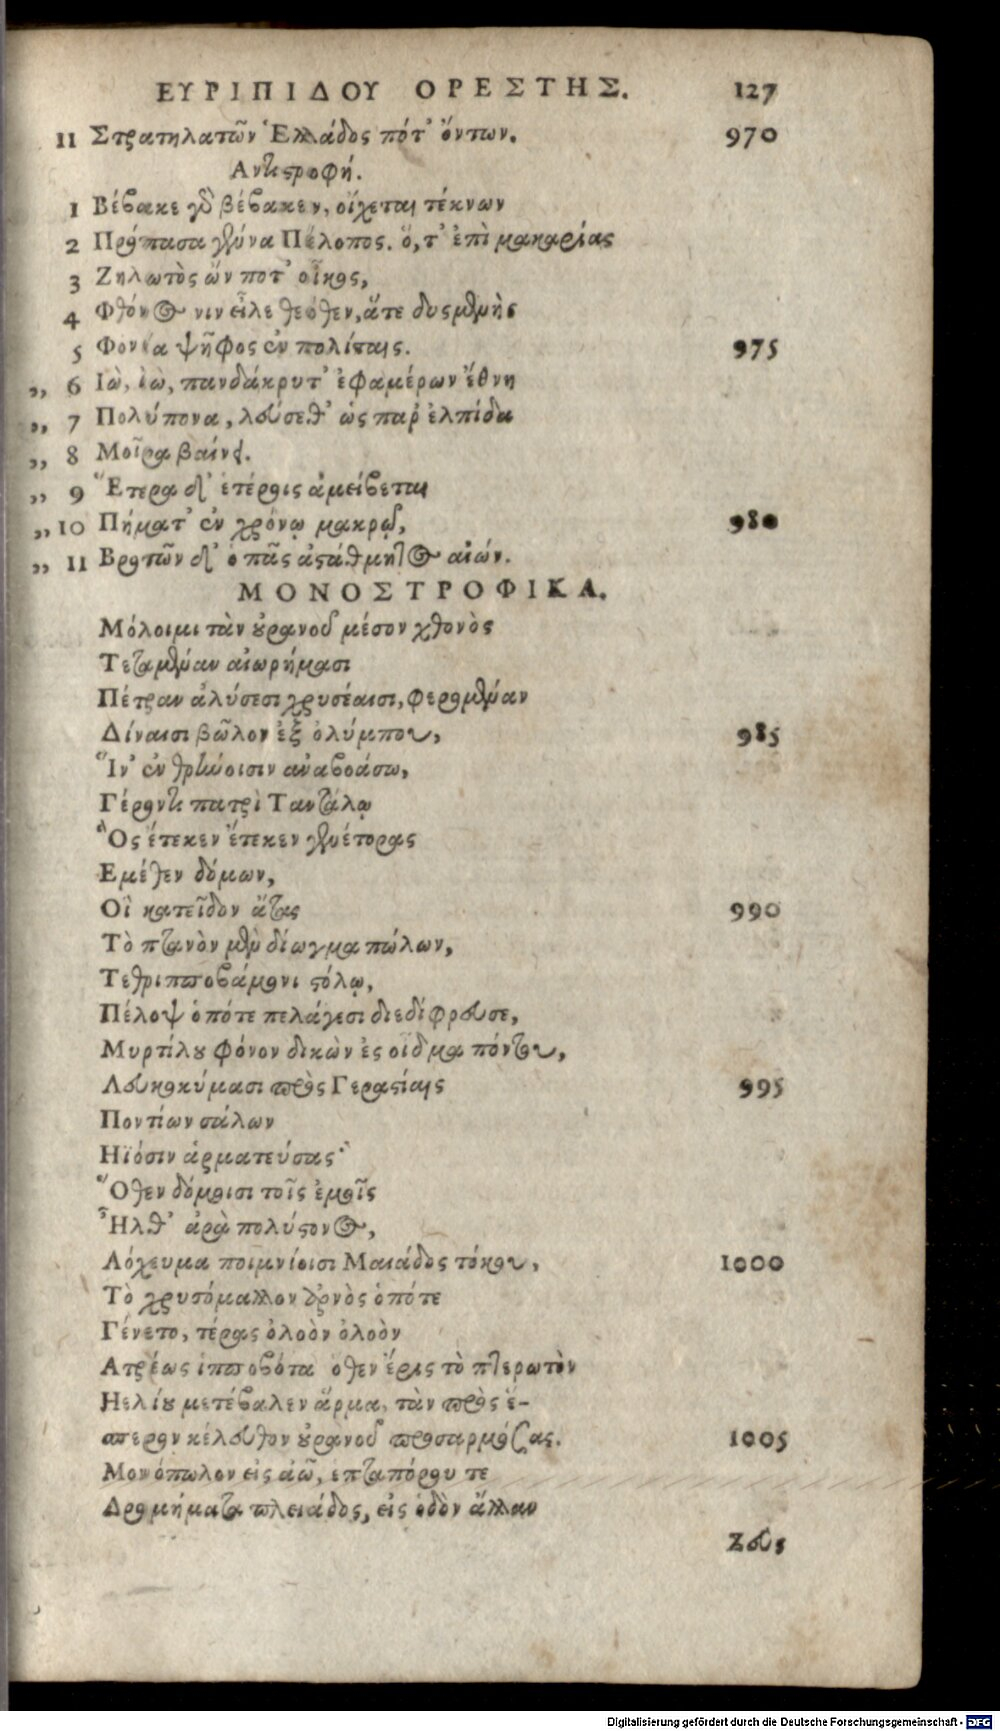 ΕΥΡΙΠΙΔΟΥ ΟΡΕΣΤΗΣ. 127
11 Στρατηλατῶν Ἑλλάδος πότ' ὄντων. 970
Αντιστροφή.
1 Βέβακε γὰρ βέβακεν, οἴχεται τέκνων
2 Πρόπασα γέννα Πέλοπος. ὅ, τ' ἐπὶ μακαρίας
3 Ζηλωτὸς ὤν ποτ' οἶκος,
4 Φθόνος νιν εἷλε θεόθεν, ἅτε δυσμενὴς
5 Φονία ψῆφος ἐν πολίταις. 975
„ 6 Ιὼ, ἰὼ, πανδάκρυτ' ἐφαμέρων ἔθνη
„ 7 Πολύπονα, λεύσεθ' ὡς παρ' ἐλπίδα
„ 8 Μοῖρα βαίνει.
„ 9 Ἕτερα δ' ἑτέροις ἀμείβεται
„ 10 Πήματ' ἐν χρόνῳ μακρῷ, 980
„ 11 Βροτῶν δ' ὁ πᾶς ἀστάθμητος αἰών.
ΜΟΝΟΣΤΡΟΦΙΚΑ.
Μόλοιμι τὰν οὐρανοῦ μέσον χθονὸς
Τεταμέναν αἰωρήμασι
Πέτραν ἁλύσεσι χρυσέαισι, φερομέναν
Δίναισι βῶλον ἐξ ὀλύμπου, 985
Ἵν' ἐν θρήνοισιν ἀναβοάσω,
Γέροντι πατρὶ Ταντάλῳ
Ὃς ἔτεκεν ἔτεκεν γενέτορας
Εμέθεν δόμων,
Οἳ κατεῖδον ἄτας 990
Τὸ πτανὸν μὲν δίωγμα πώλων,
Τεθριπποβάμονι στόλῳ,
Πέλοψ ὁπότε πελάγεσι διεδίφρευσε,
Μυρτίλου φόνον δικὼν ἐς οἶδμα πόντου,
Λευκοκύμασι πρὸς Γεραιστίαις 995
Ποντίων σάλων
Ηϊόσιν ἁρματεύσας·
Ὅθεν δόμοισι τοῖς ἐμοῖς
Ἦλθ' ἀρὰ πολύστονος,
Λόχευμα ποιμνίοισι Μαιάδος τόκου, 1000
Τὸ χρυσόμαλλον ἀρνὸς ὁπότε
Γένετο, τέρας ὀλοὸν ὀλοὸν
Ατρέως ἱπποβότα ὅθεν ἔρις τὸ πτερωτὸν
Ηελίου μετέβαλεν ἅρμα, τὰν πρὸς ἕ-
σπερον κέλευθον οὐρανοῦ προσαρμόσας. 1005
Μονόπωλον εἰς ἀῶ, ἑπταπόρου τε
Δρομήματα πλειάδος, εἰς ὁδὸν ἄλλαν
Ζεὺς
Digitalisierung gefördert durch die Deutsche Forschungsgemeinschaft - DFG